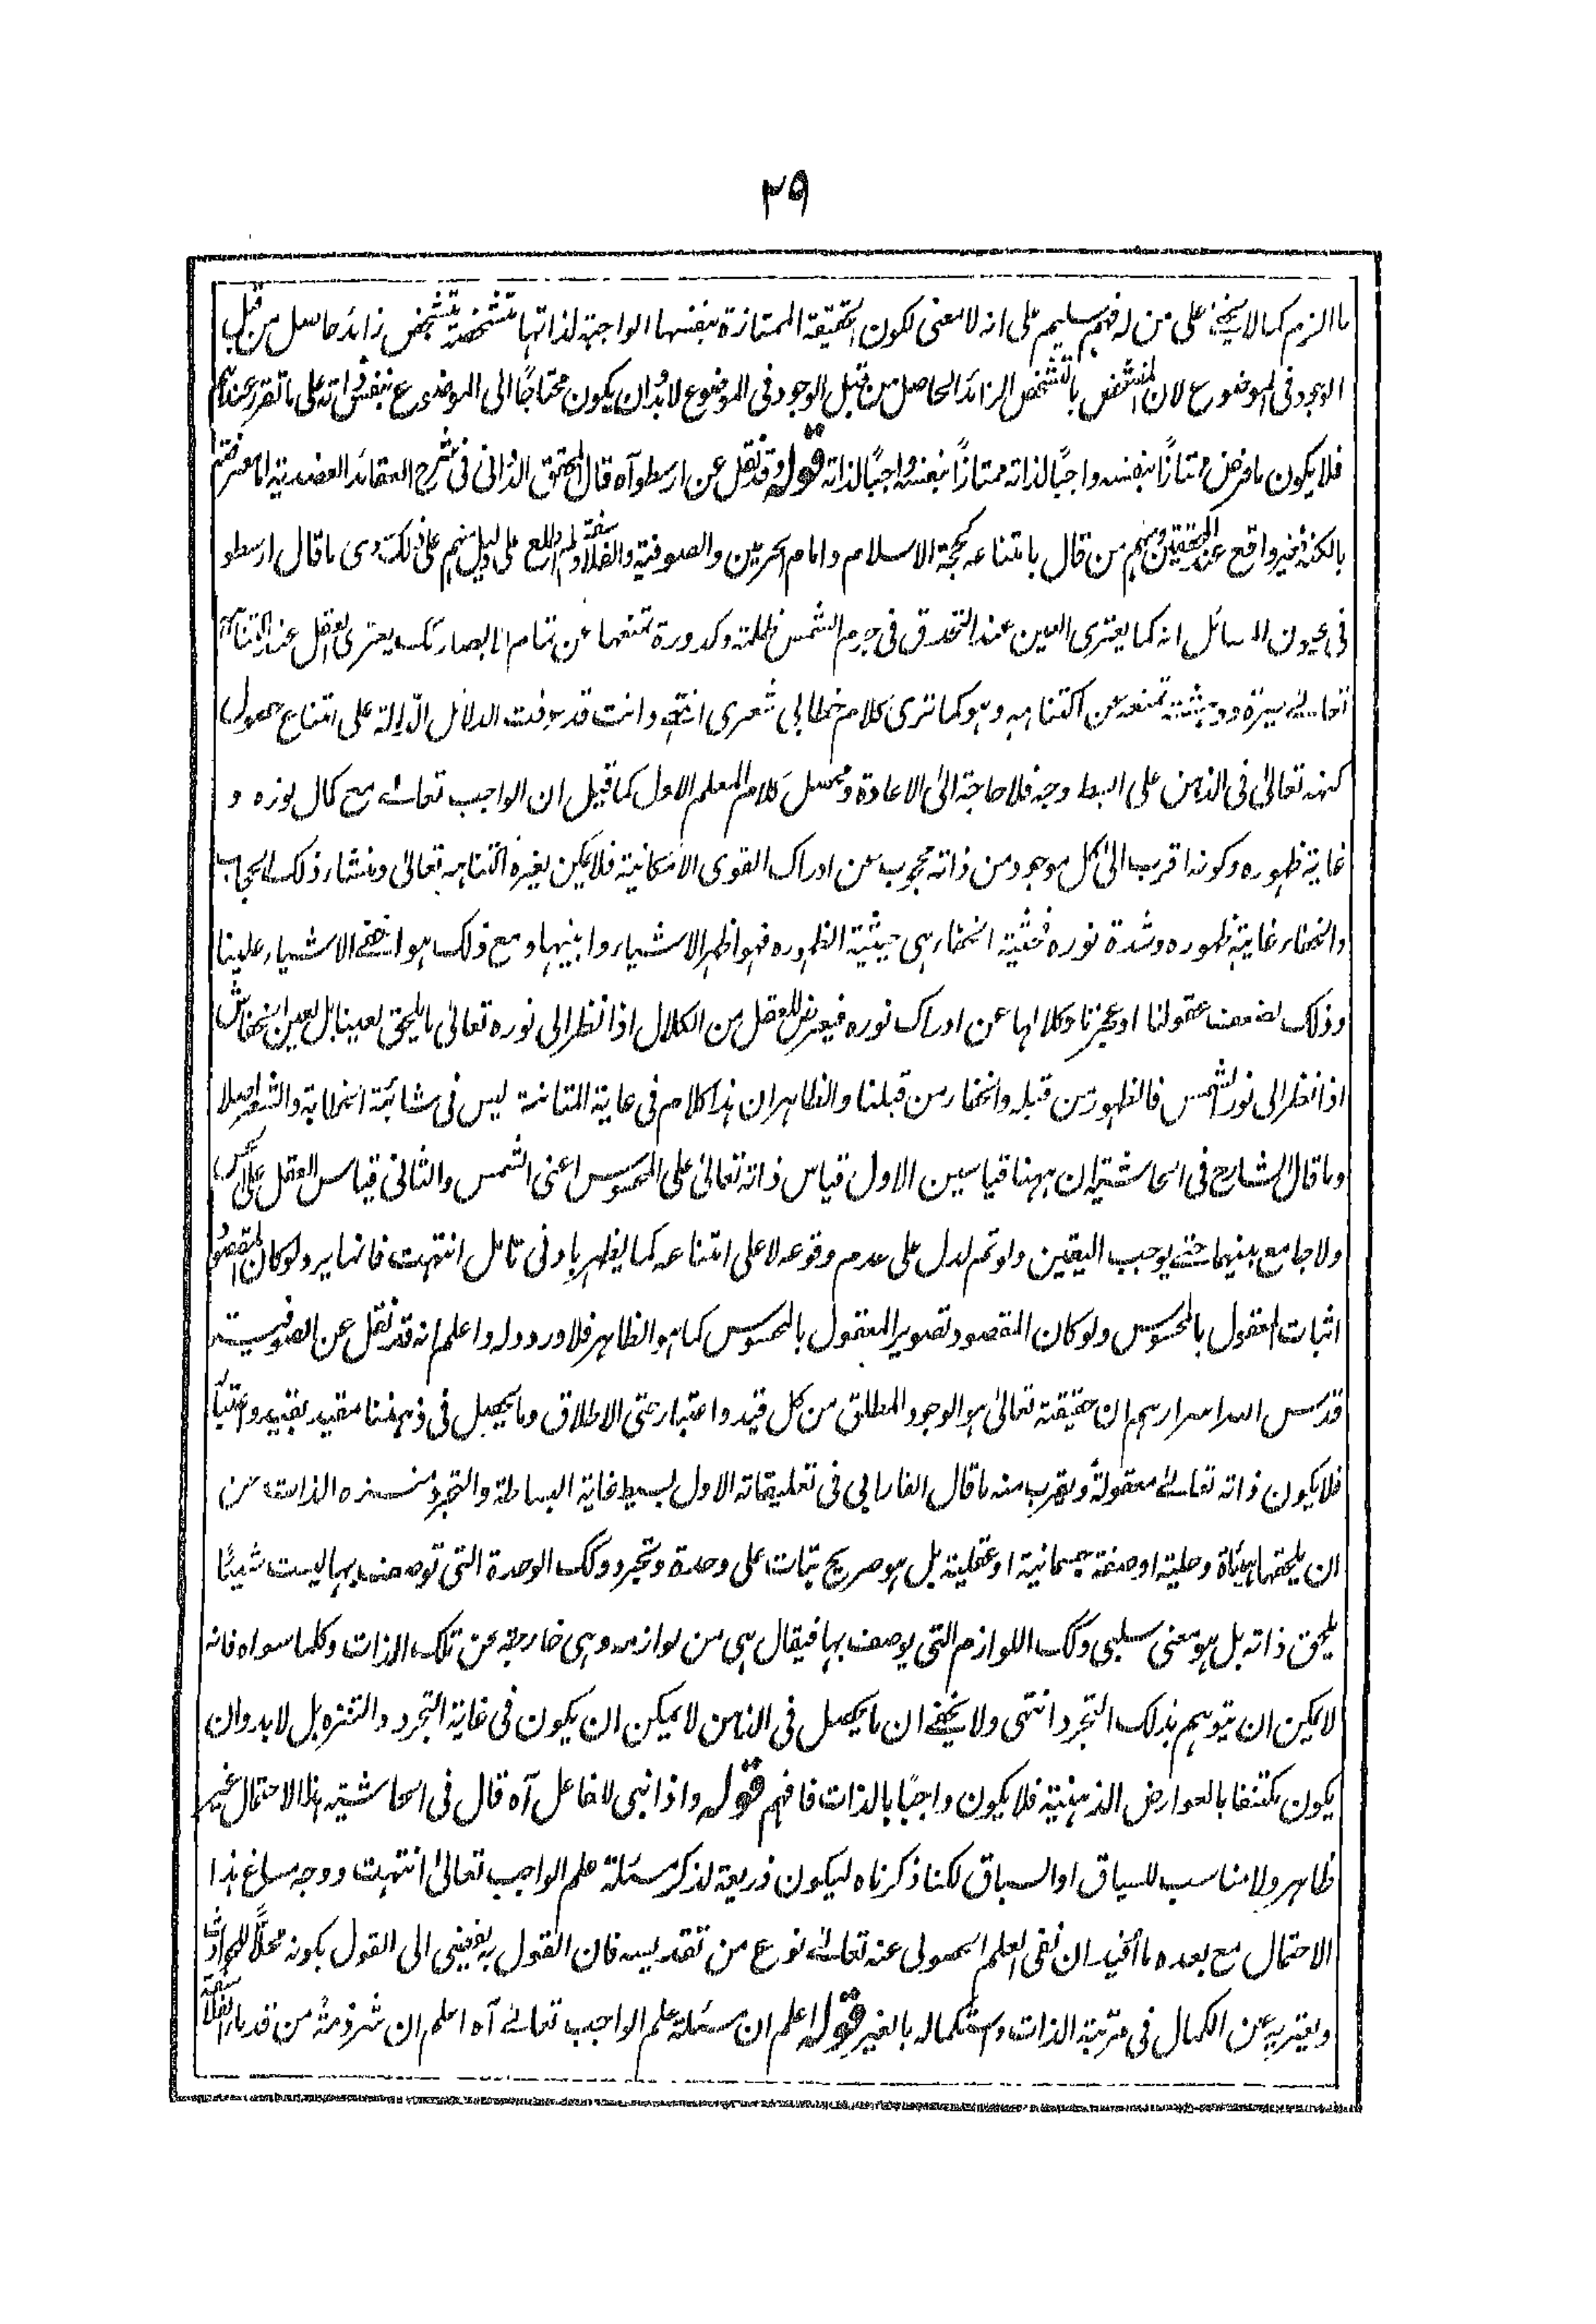 ٣٩
ما الزم كما لا يخفى على من له فهم سليم على انه لا معنى لكون الحقيقة الممتازة بنفسها الواجبة لذاتها متشخصة بتشخص زائد حاصل من قبل
الوجود فى الموضوع لان المتشخص بالتشخص الزائد الحاصل من قبل الوجود فى الموضوع لابد وان يكون محتاجًا الى الموضوع بنفس ذاته على ما تقرر عندهم
فلا يكون ما فرض ممتازًا بنفسه واجبًا لذاته ممتازًا بنفسه واجبًا لذاته قوله وقد نقل عن ارسطو آه قال المحقق الدوانى فى شرح العقائد العضدية اما معرفته
بالكنه فغير واقع عند المحققين ومنهم من قال بامتناعه كحجة الاسلام وامام الحرمين والصوفية والفلاسفة ولم اطلع على دليل منهم على ذلك سوى ما قال ارسطو
فى عيون المسائل انه كما يعترى العين عند التحدق فى جرم الشمس ظلمة وكدورة تمنعها عن تمام الابصار كك يعترى العقل عند اكتناهه
تعالى حيرة ودهشة تمنعه عن اكتناهه وهو كما ترى كلام خطابى شعرى انتهى وانت قد عرفت الدلائل الدالة على امتناع حصول
كنهه تعالى فى الذهن على ابسط وجه فلا حاجة الى الاعادة ومحصل كلام المعلم الاول كما قيل ان الواجب تعالى مع كمال نوره و
غاية ظهوره وكونه اقرب الى كل موجود من ذاته محجوب عن ادراك القوى الامكانية فلا يمكن لغيره اكتناهه تعالى ومنشاء ذلك الحجاب
والخفاء غاية ظهوره وشدة نوره فحيثية الخفاء هى حيثية الظهوره فهو اظهر الاشياء وابينها ومع ذلك هو اخفى الاشياء علينا
وذلك لضعف عقولنا او عجزنا وكلالها عن ادراك نوره فيعرض للعقل من الكلال اذا نظر الى نوره تعالى ما يلحق لعيننا بل لعين الخفاش
اذا نظر الى نور الشمس فالظهور من قبله والخفاء من قبلنا والظاهر ان هذا كلام فى غاية المتانة ليس فى شائبة الخطابة والشعر اصلا
وما قال الشارح فى الحاشية ان ههنا قياسين الاول قياس ذاته تعالى على المحسوس اعنى الشمس والثانى قياس العقل على الحس
ولا جامع بينهما حتى يوجب اليقين ولو تم لدل على عدم وقوعه لا على امتناعه كما يظهر بادنى تامل انتهت فانما يرد لو كان المقصود
اثبات المعقول بالمحسوس ولو كان المقصود تصوير المعقول بالمحسوس كما هو الظاهر فلا ورود له واعلم انه قد نقل عن الصوفية
قدس الله اسرارهم ان حقيقته تعالى هو الوجود المطلق من كل قيد واعتبار حتى الاطلاق وما يحصل فى ذهننا مقيد بقيد واعتبار
فلا يكون ذاته تعالى معقولة ويقرب منه ما قال الفارابى فى تعليقاته الاول بسيط غاية البساطة والتجرد منزه الذات عن
ان يلحقها هيأة وحلية او صفة جسمانية او عقلية بل هو صريح ثبات على وحدة وتجرد وكك الوحدة التى توصف بها ليست شيئًا
يلحق ذاته بل هو معنى سلبى وكك اللوازم التى يوصف بها فيقال هى من لوازمه وهى خارجة عن تلك الذات وكلما سواه فانه
لا يمكن ان يتوهم بذلك التجرد انتهى ولا يخفى ان ما يحصل فى الذهن لا يمكن ان يكون فى غاية التجرد والتنزه بل لا بد وان
يكون مكتنفا بالعوارض الذهنية فلا يكون واجبًا بالذات فافهم قوله واذا نبى لا فاعل آه قال فى الحاشية هذا الاحتمال غير
ظاهر ولا مناسب للسياق او السباق لكنا ذكرناه ليكون ذريعة لذكر مسئلة علم الواجب تعالى انتهت ووجه مساغ هذا
الاحتمال مع بعده ما افيد ان نفى العلم الحصولى عنه تعالى نوع من تقديسه فان القول به يفضى الى القول بكونه محلًا للحوادث
وبعتريه عن الكمال فى مرتبة الذات واستكماله بالغير قوله اعلم ان مسئلة علم الواجب تعالى آه اعلم ان شرذمة من قدماء الفلاسفة